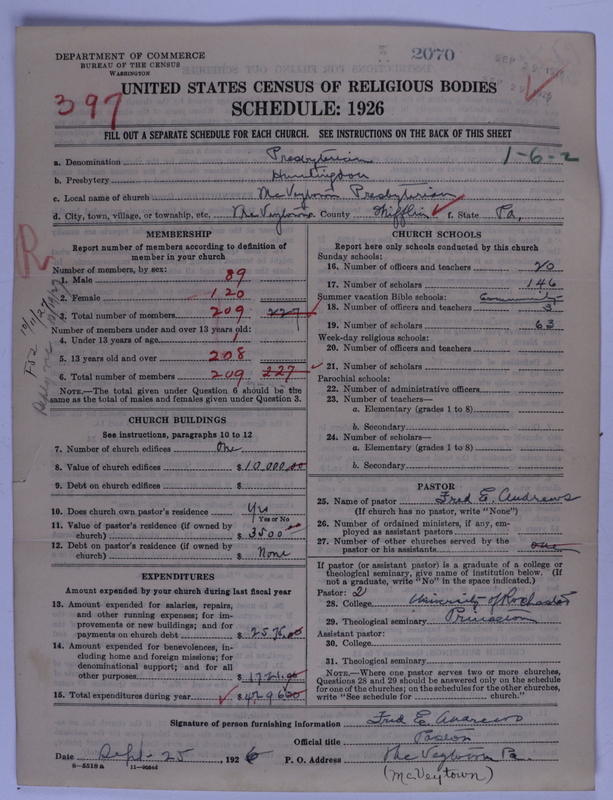 DEPARTMENT OF COMMERCE
BUREAU OF THE CENSUS
WASHINGTON
2070
397
UNITED STATES CENSUS OF RELIGIOUS BODIES
SCHEDULE: 1926
FILL OUT A SEPARATE SCHEDULE FOR EACH CHURCH. SEE INSTRUCTIONS ON THE BACK OF THIS SHEET
1-6-2
a. Denomination Presbyterian
b. Presbytery Huntingdon
c. Local name of church McVeytown Presbyterian
d. City, town, village, or township, etc. McVeytown County Mifflin f. State Pa.
R
MEMBERSHIP
Report number of members according to definition of
member in your church
Number of members, by sex:
1. Male 89
2. Female 120
3. Total number of members 209 227
Number of members under and over 13 years old:
4. Under 13 years of age 1
5. 13 years old and over 208
6. Total number of members 209 227
NOTE.—The total given under Question 6 should be the
same as the total of males and females given under Question 3.
CHURCH BUILDINGS
See instructions, paragraphs 10 to 12
7. Number of church edifices One
8. Value of church edifices $10,000.00
9. Debt on church edifices $
10. Does church own pastor's residence Yes
Yes or No
11. Value of pastor's residence (if owned by
church) $3500
12. Debt on pastor's residence (if owned by
church) $ None
EXPENDITURES
Amount expended by your church during last fiscal year
13. Amount expended for salaries, repairs,
and other running expenses; for im-
provements or new buildings; and for
payments on church debt $2575.00
14. Amount expended for benevolences, in-
cluding home and foreign missions; for
denominational support; and for all
other purposes $1721.00
15. Total expenditures during year $4296.00
CHURCH SCHOOLS
Report here only schools conducted by this church
Sunday schools:
16. Number of officers and teachers 20
17. Number of scholars 146
Summer vacation Bible schools: Community
18. Number of officers and teachers 3
19. Number of scholars 63
Week-day religious schools:
20. Number of officers and teachers
21. Number of scholars
Parochial schools:
22. Number of administrative officers
23. Number of teachers—
a. Elementary (grades 1 to 8)
b. Secondary
24. Number of scholars—
a. Elementary (grades 1 to 8)
b. Secondary
PASTOR
25. Name of pastor Fred E. Andrews
(If church has no pastor, write "None")
26. Number of ordained ministers, if any, em-
ployed as assistant pastors
27. Number of other churches served by the
pastor or his assistants one
If pastor (or assistant pastor) is a graduate of a college or
theological seminary, give name of institution below. (If
not a graduate, write "No" in the space indicated.)
Pastor: 2
28. College University of Rochester
29. Theological seminary Princeton
Assistant pastor:
30. College
31. Theological seminary
NOTE.—Where one pastor serves two or more churches,
Questions 28 and 29 should be answered only on the schedule
for one of the churches; on the schedules for the other churches,
write "See schedule for church."
Signature of person furnishing information Fred E. Andrews
Official title Pastor
Date Sept. 25, 1926 P. O. Address McVeytown Pa.
(McVeytown)